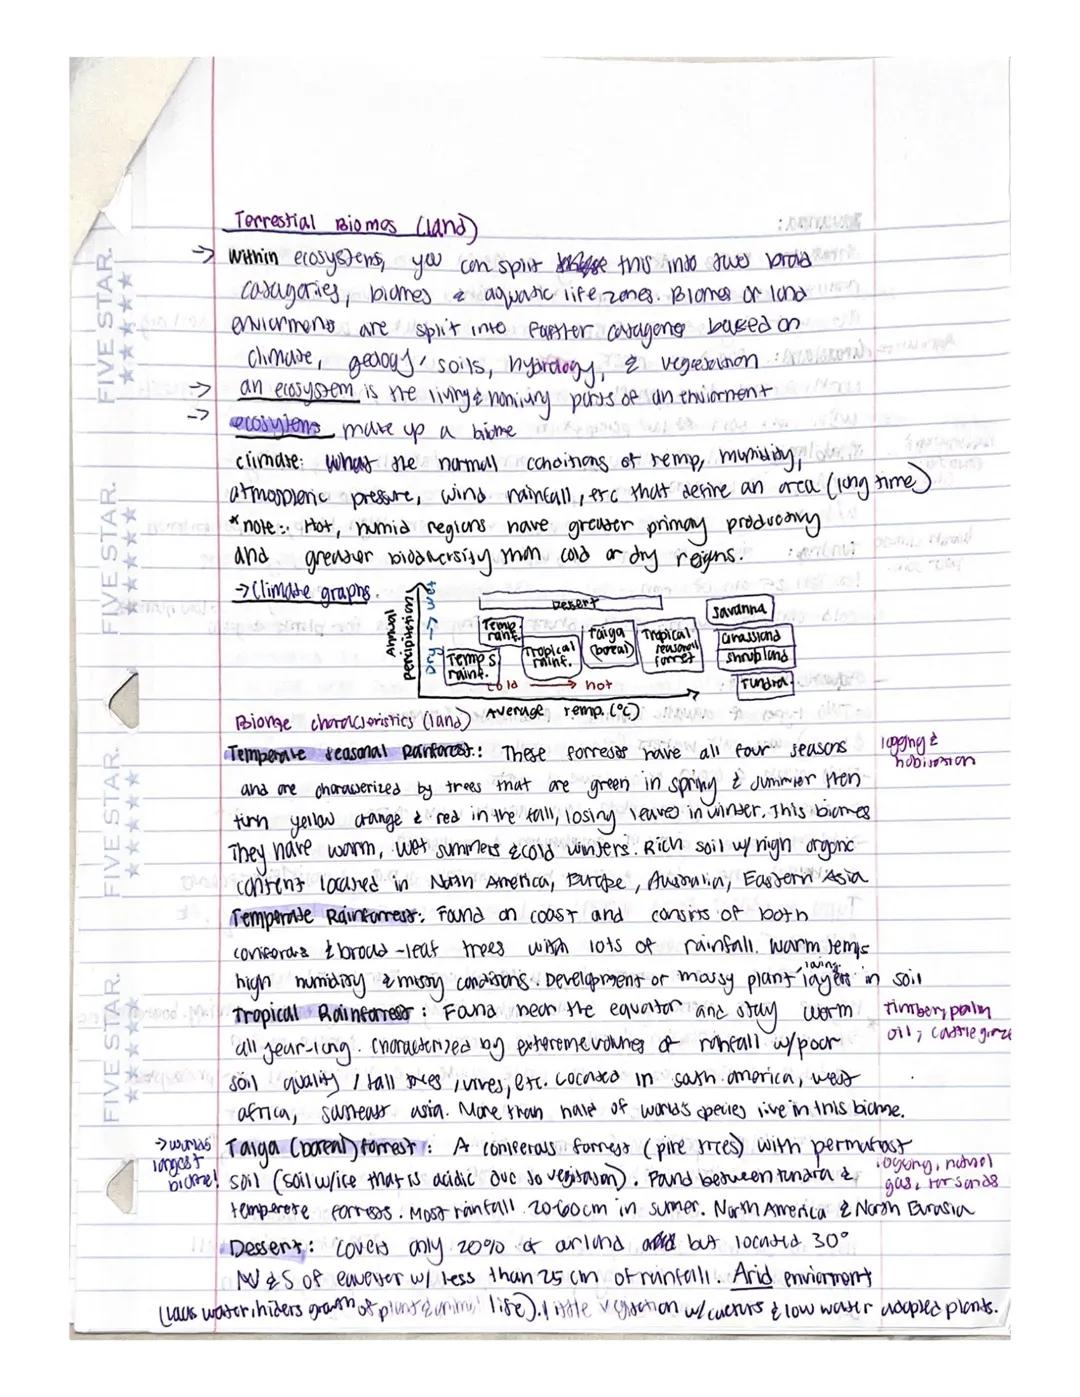 Terrestial Biomes (land)
→ Within ecosystems, you can split this into two broad
catagories, biomes & aquatic life zones. Biomes or land
enviorments are split into further catagories based on
climate, geology, soils, hydrology, & vegetation
→ an ecosystem is the living & nonliving parts of an enviorment
→ ecosystems make up a biome
climate: What the normal conditions of temp, humidity,
atmospheric pressure, wind rainfall, etc that define an area (long time)
*note: Hot, humid regions have greater primary productivity
and greater biodiversity than cold or dry reigns.
→ Climate graphs.
Annual percipitation
Dry → wet
Dessert
Temp. rainf.
Temp S. rainf.
Tropical rainf.
Taiga (boreal)
Tropical seasonal forrest
Savanna
Grassland
Shrubland
Tundra
cold → hot
Average Temp. (°C)
Biome characteristics (land)
Temperate seasonal Rainforest: These forrests have all four seasons
logging & habitation
and are characterized by trees that are green in spring & summer then
turn yellow orange & red in the fall, losing leaves in winter. This biomes
They have warm, wet summers & cold winters. Rich soil w/ high organic
content located in North America, Europe, Australia, Eastern Asia
Temperate Rainforrest: Found on coast and consists of both
& broad-leaf trees with lots of rainfall. Warm temps
high humidity & misty conditions. Development or mossy plant layers in soil
Tropical Rainforrest: Found near the equator and stay warm
timber, palm oil, cattle graze
all year-long. Characterized by extereme volumes of rainfall w/ poor
soil quality / tall trees, vines, etc. Located in south america, west
africa, southeast asia. More than half of worlds species live in this biome.
→ worlds longest biome!
Taiga (boreal) forrest: A coniferous forrest (pine trees) with permafrost
logging, natural gas, tar sands
soil (soil w/ ice that is acidic due to vegitation). Found between tundra &
temperete forrests. Most rainfall 20-60cm in sumer. North America & North Eurasia
Dessert: Covers only 20% of our land but located 30°
N & S of equator w/ less than 25 cm of rainfall. Arid enviorment
(lack water: hiders growth of plant & animal life). little vegitation w/ cactus & low water adapted plants.
FIVE STAR.
FIVE STAR.
FIVE STAR.
FIVE STAR.